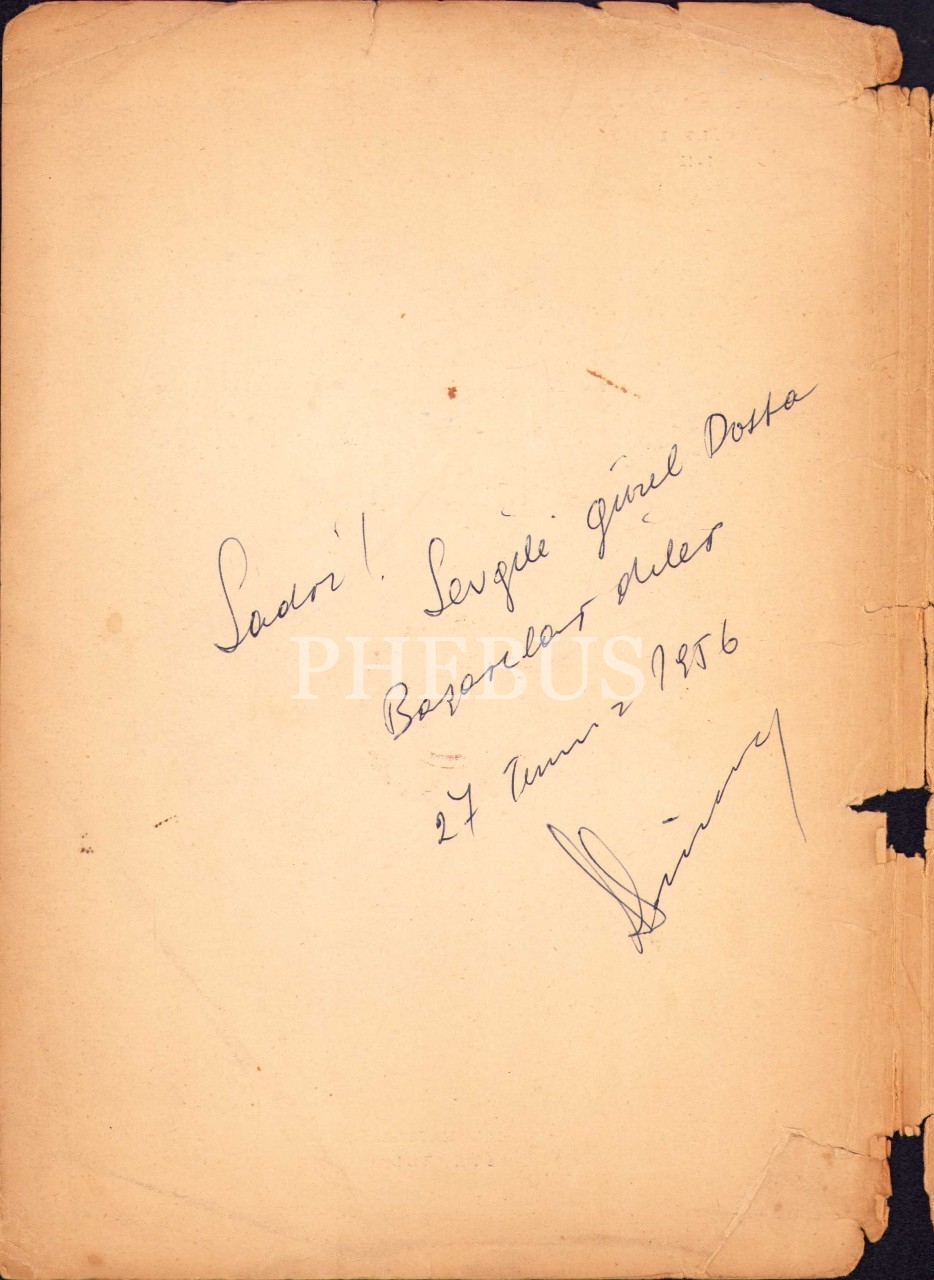 Sadri! Sevgili güzel Dosta
Başarılar diler
27 Temmuz 1956
PHEBUS